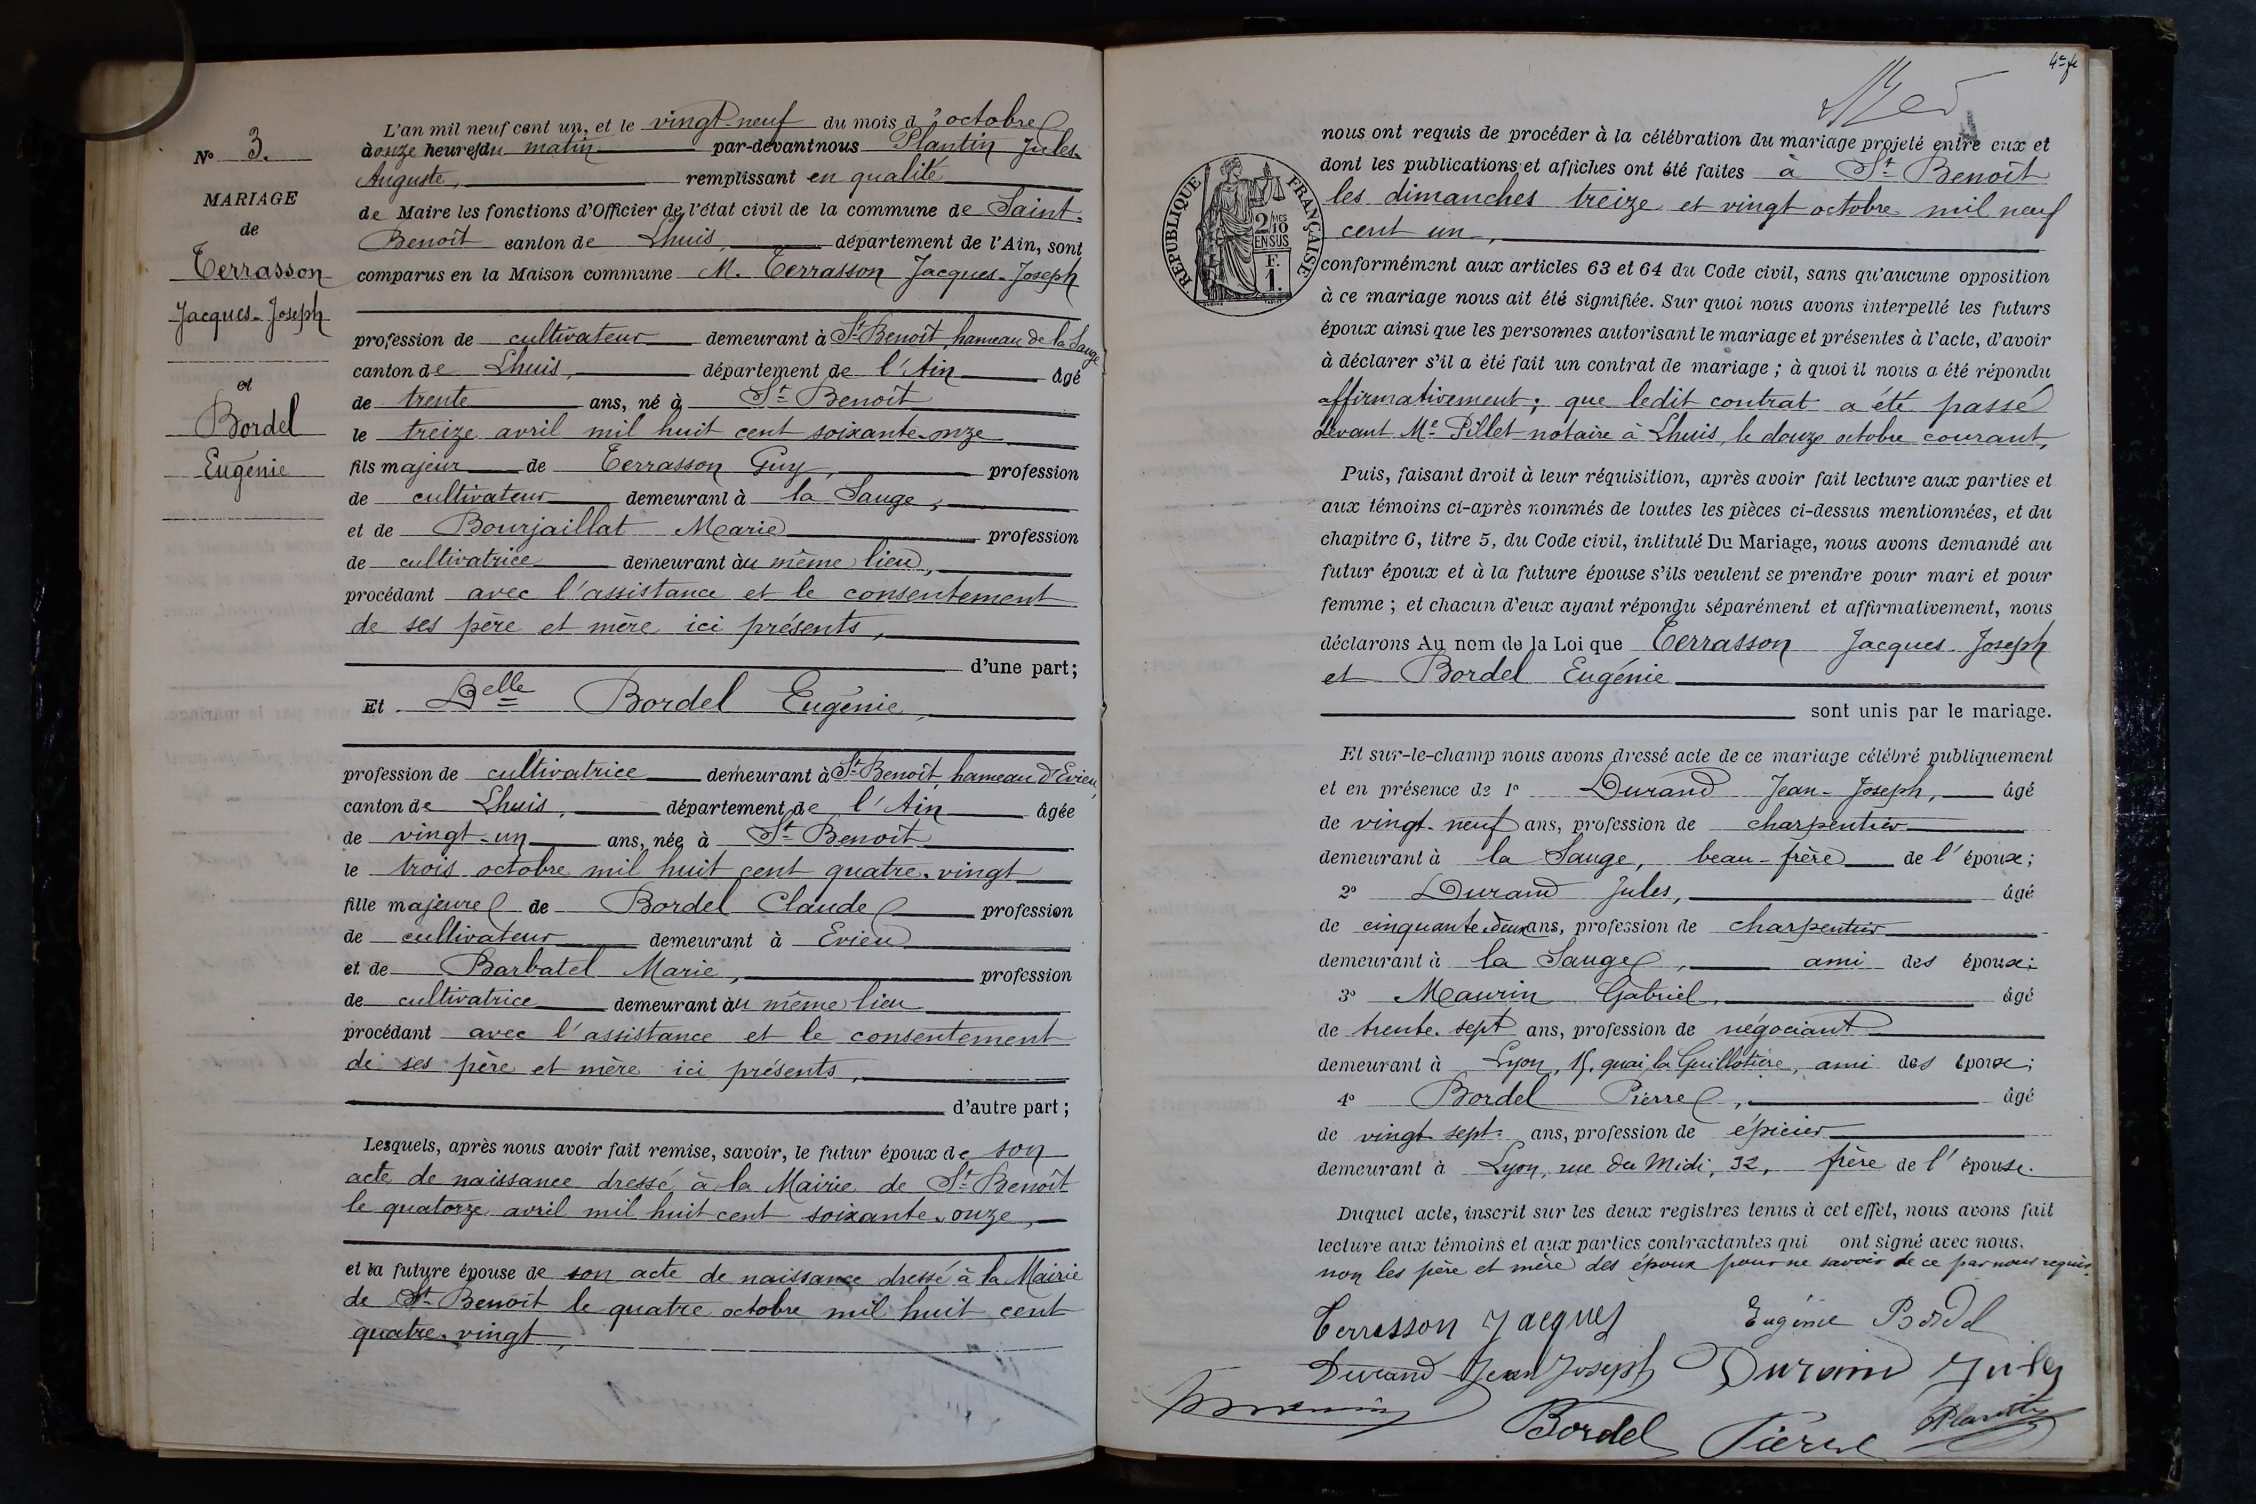 N° 3.
MARIAGE
de
Terrasson
Jacques-Joseph
et
Bordel
Eugénie
L'an mil neuf cent un, et le vingt-neuf du mois d'octobre
à onze heures du matin par-devant nous Plantin Jules-
Auguste, remplissant en qualité
de Maire les fonctions d'Officier de l'état civil de la commune de Saint-
Benoît canton de Lhuis, département de l'Ain, sont
comparus en la Maison commune M. Terrasson Jacques-Joseph
profession de cultivateur demeurant à St Benoît, hameau de la Sauge
canton de Lhuis, département de l'Ain âgé
de trente ans, né à St Benoît
le treize avril mil huit cent soixante-onze
fils majeur de Terrasson Guy, profession
de cultivateur demeurant à la Sauge,
et de Bourjaillat Marie profession
de cultivatrice demeurant au même lieu,
procédant avec l'assistance et le consentement
de ses père et mère ici présents,
d'une part;
Et Delle Bordel Eugénie,
profession de cultivatrice demeurant à St Benoît, hameau d'Evieu,
canton de Lhuis, département de l'Ain âgée
de vingt-un ans, née à St Benoît
le trois octobre mil huit cent quatre-vingt
fille majeure de Bordel Claude profession
de cultivateur demeurant à Evieu
et de Barbatel Marie, profession
de cultivatrice demeurant au même lieu
procédant avec l'assistance et le consentement
de ses père et mère ici présents,
d'autre part;
Lesquels, après nous avoir fait remise, savoir, le futur époux de son
acte de naissance dressé à la Mairie de St Benoît
le quatorze avril mil huit cent soixante-onze,
et la future épouse de son acte de naissance dressé à la Mairie
de St Benoît le quatre octobre mil huit cent
quatre-vingt,
RÉPUBLIQUE FRANÇAISE
2/10
EN SUS
F.
1.
nous ont requis de procéder à la célébration du mariage projeté entre eux et
dont les publications et affiches ont été faites à St Benoît
les dimanches treize et vingt octobre mil neuf
cent un,
conformément aux articles 63 et 64 du Code civil, sans qu'aucune opposition
à ce mariage nous ait été signifiée. Sur quoi nous avons interpellé les futurs
époux ainsi que les personnes autorisant le mariage et présentes à l'acte, d'avoir
à déclarer s'il a été fait un contrat de mariage; à quoi il nous a été répondu
affirmativement; que ledit contrat a été passé
devant Me Pillet notaire à Lhuis, le douze octobre courant,
Puis, faisant droit à leur réquisition, après avoir fait lecture aux parties et
aux témoins ci-après nommés de toutes les pièces ci-dessus mentionnées, et du
chapitre 6, titre 5, du Code civil, intitulé Du Mariage, nous avons demandé au
futur époux et à la future épouse s'ils veulent se prendre pour mari et pour
femme; et chacun d'eux ayant répondu séparément et affirmativement, nous
déclarons Au nom de la Loi que Terrasson Jacques-Joseph
et Bordel Eugénie
sont unis par le mariage.
Et sur-le-champ nous avons dressé acte de ce mariage célébré publiquement
et en présence de 1° Durand Jean-Joseph, âgé
de vingt-neuf ans, profession de charpentier
demeurant à la Sauge, beau-frère de l'époux;
2° Durand Jules, âgé
de cinquante-deux ans, profession de charpentier
demeurant à la Sauge, ami des époux;
3° Maurin Gabriel, âgé
de trente-sept ans, profession de négociant
demeurant à Lyon, 15, quai la Guillotière, ami des époux;
4° Bordel Pierre, âgé
de vingt-sept ans, profession de épicier
demeurant à Lyon, rue du Midi, 32, frère de l'épouse.
Duquel acte, inscrit sur les deux registres tenus à cet effet, nous avons fait
lecture aux témoins et aux parties contractantes qui ont signé avec nous,
non les père et mère des époux pour ne savoir de ce par nous requis.
Terrasson Jacques Eugénie Bordel
Durand Jean Joseph Durand Jules
Maurin
Bordel Pierre Plantin